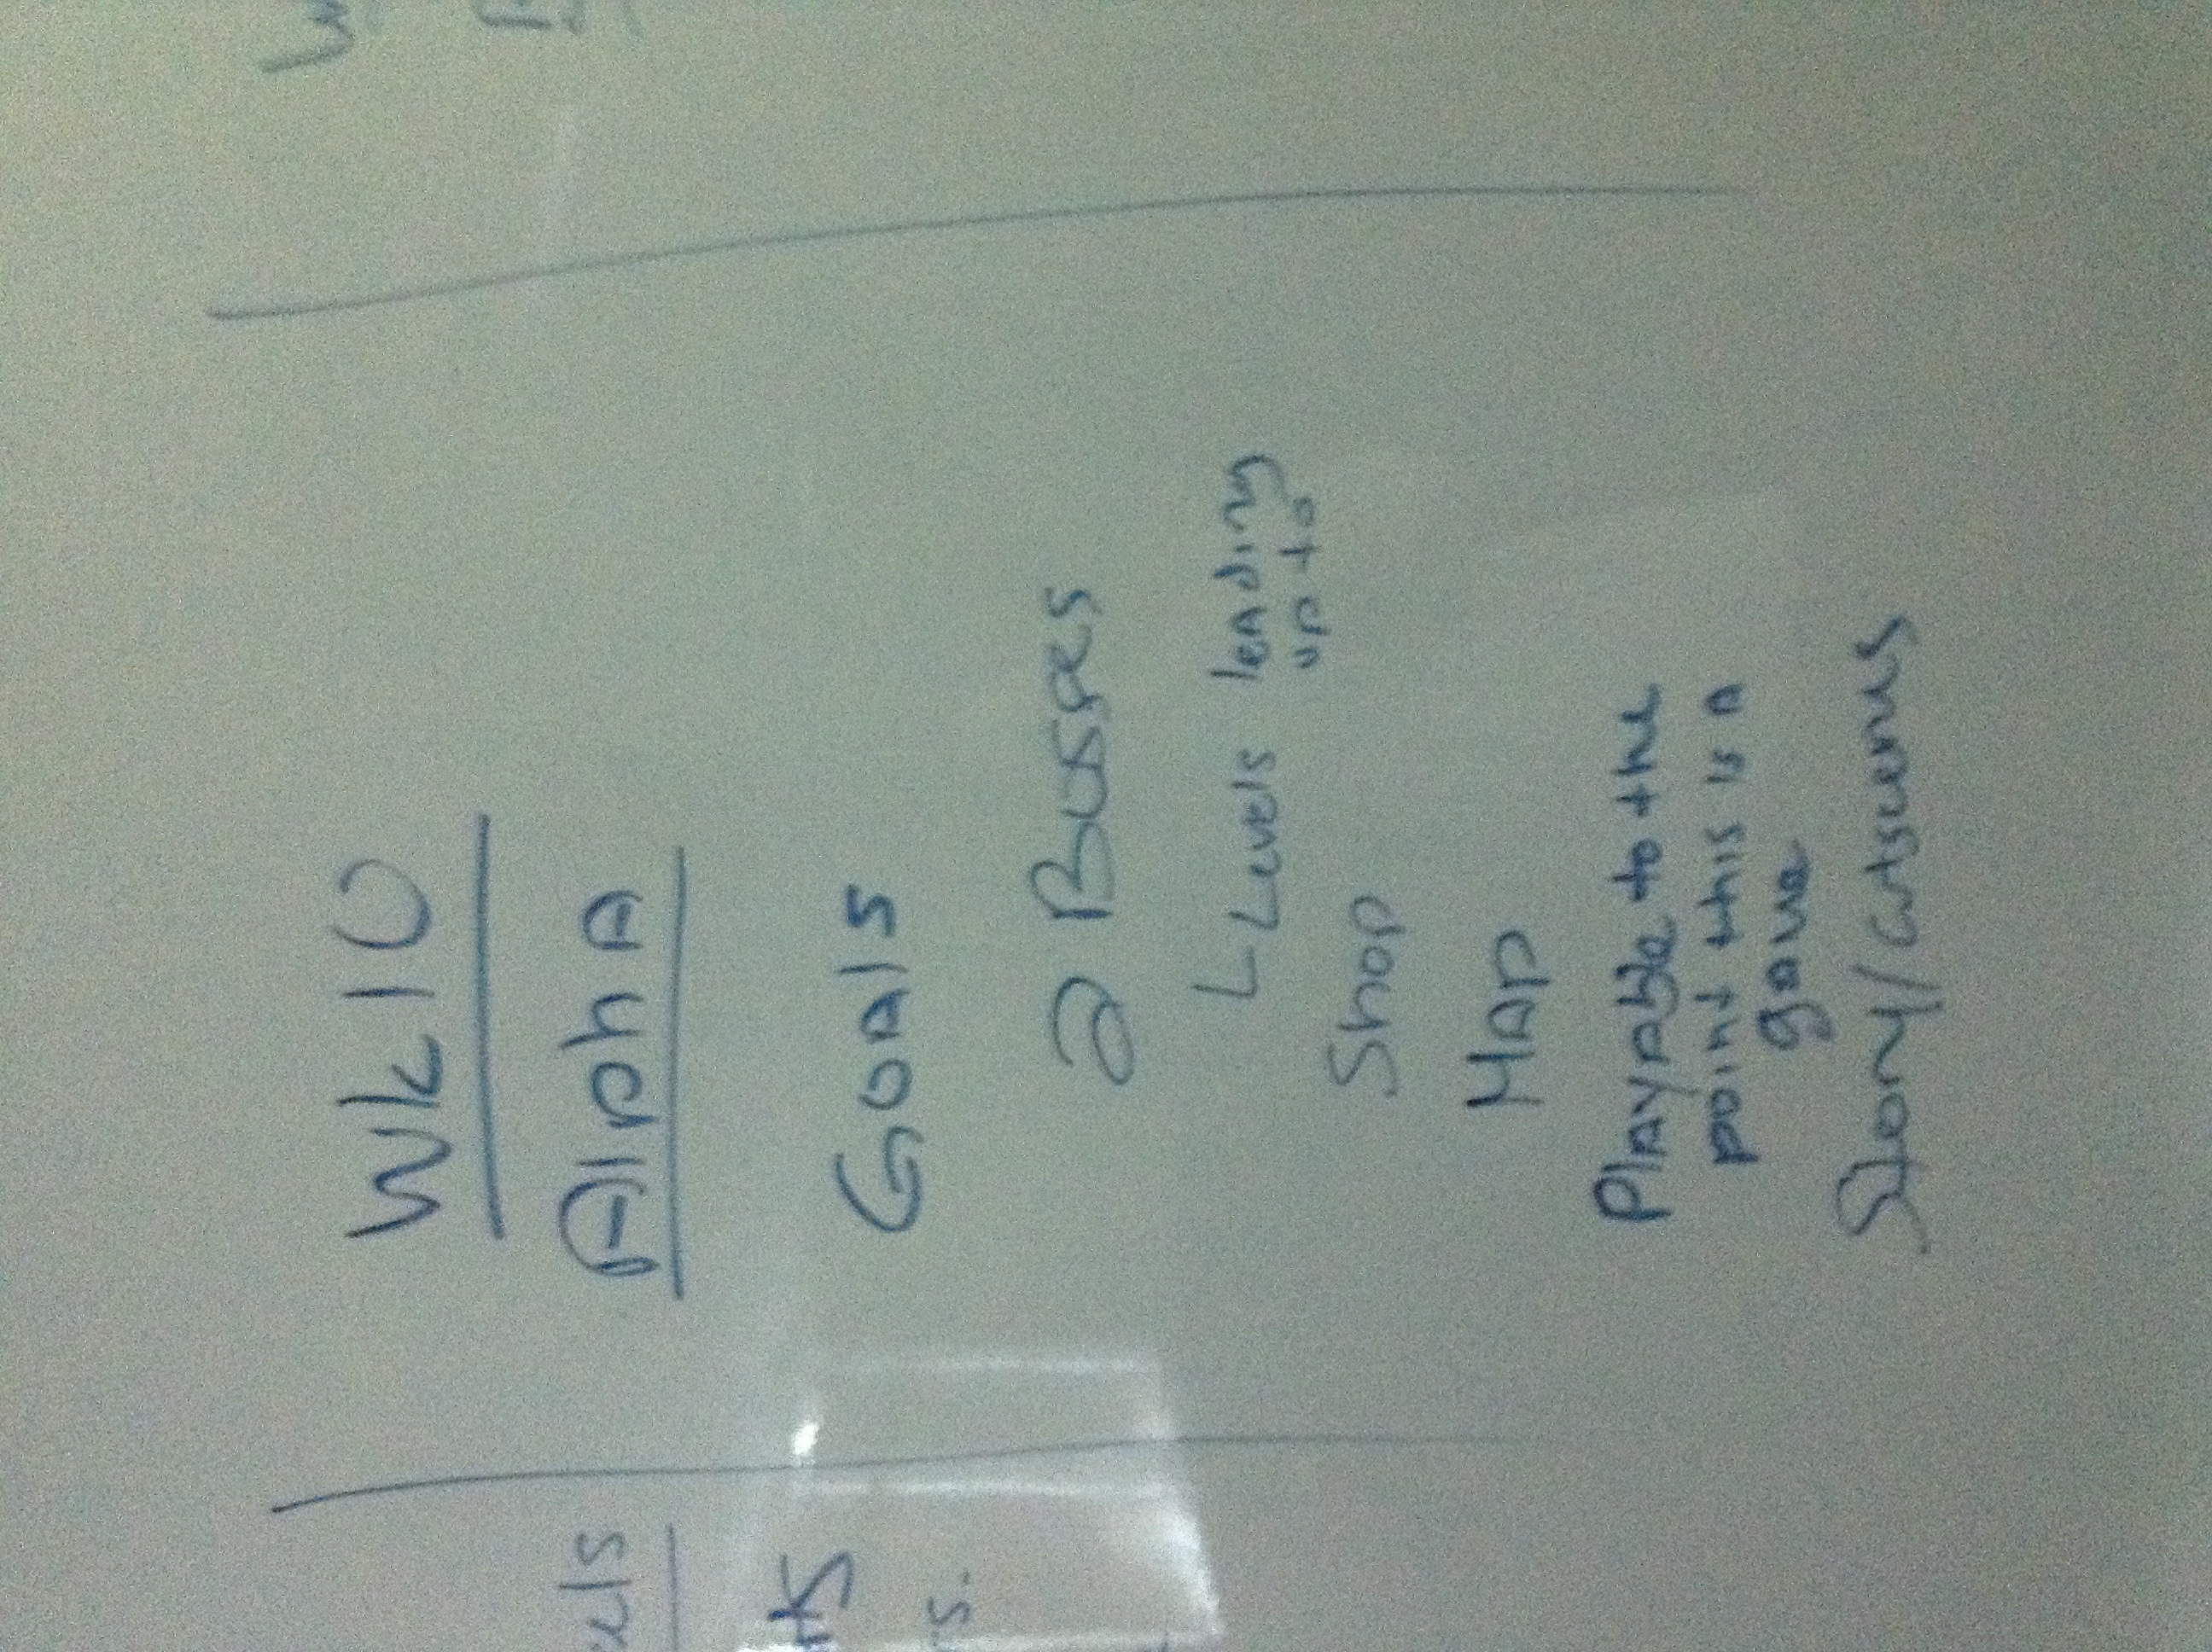 Wk 10
Alpha
Goals
2 Bosses
Levels leading
up to
Shop
Map
Playable to the
point this is a
game
Story/cutscenes